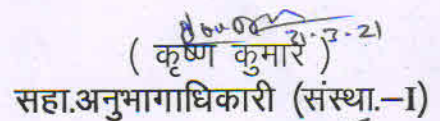 31-3-21
( कृष्ण कुमार )
सहा.अनुभागाधिकारी (संस्था.–I)